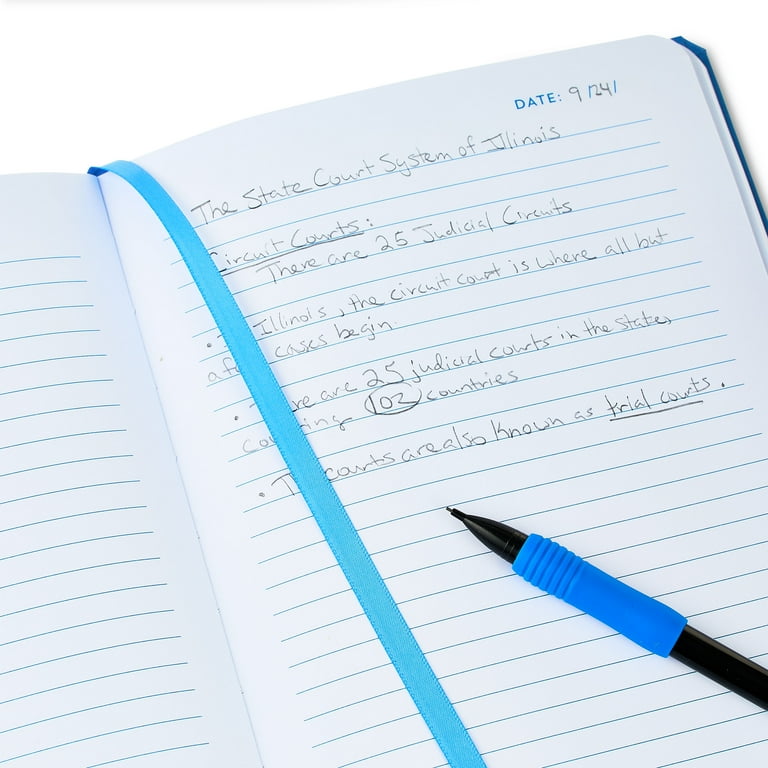 DATE: 9/24/
The State Court System of Illinois
Circuit Courts:
There are 25 Judicial Circuits
Illinois, the circuit court is where all but
cases begin.
are 25 judicial courts in the states,
102 countries
courts are also known as trial courts.